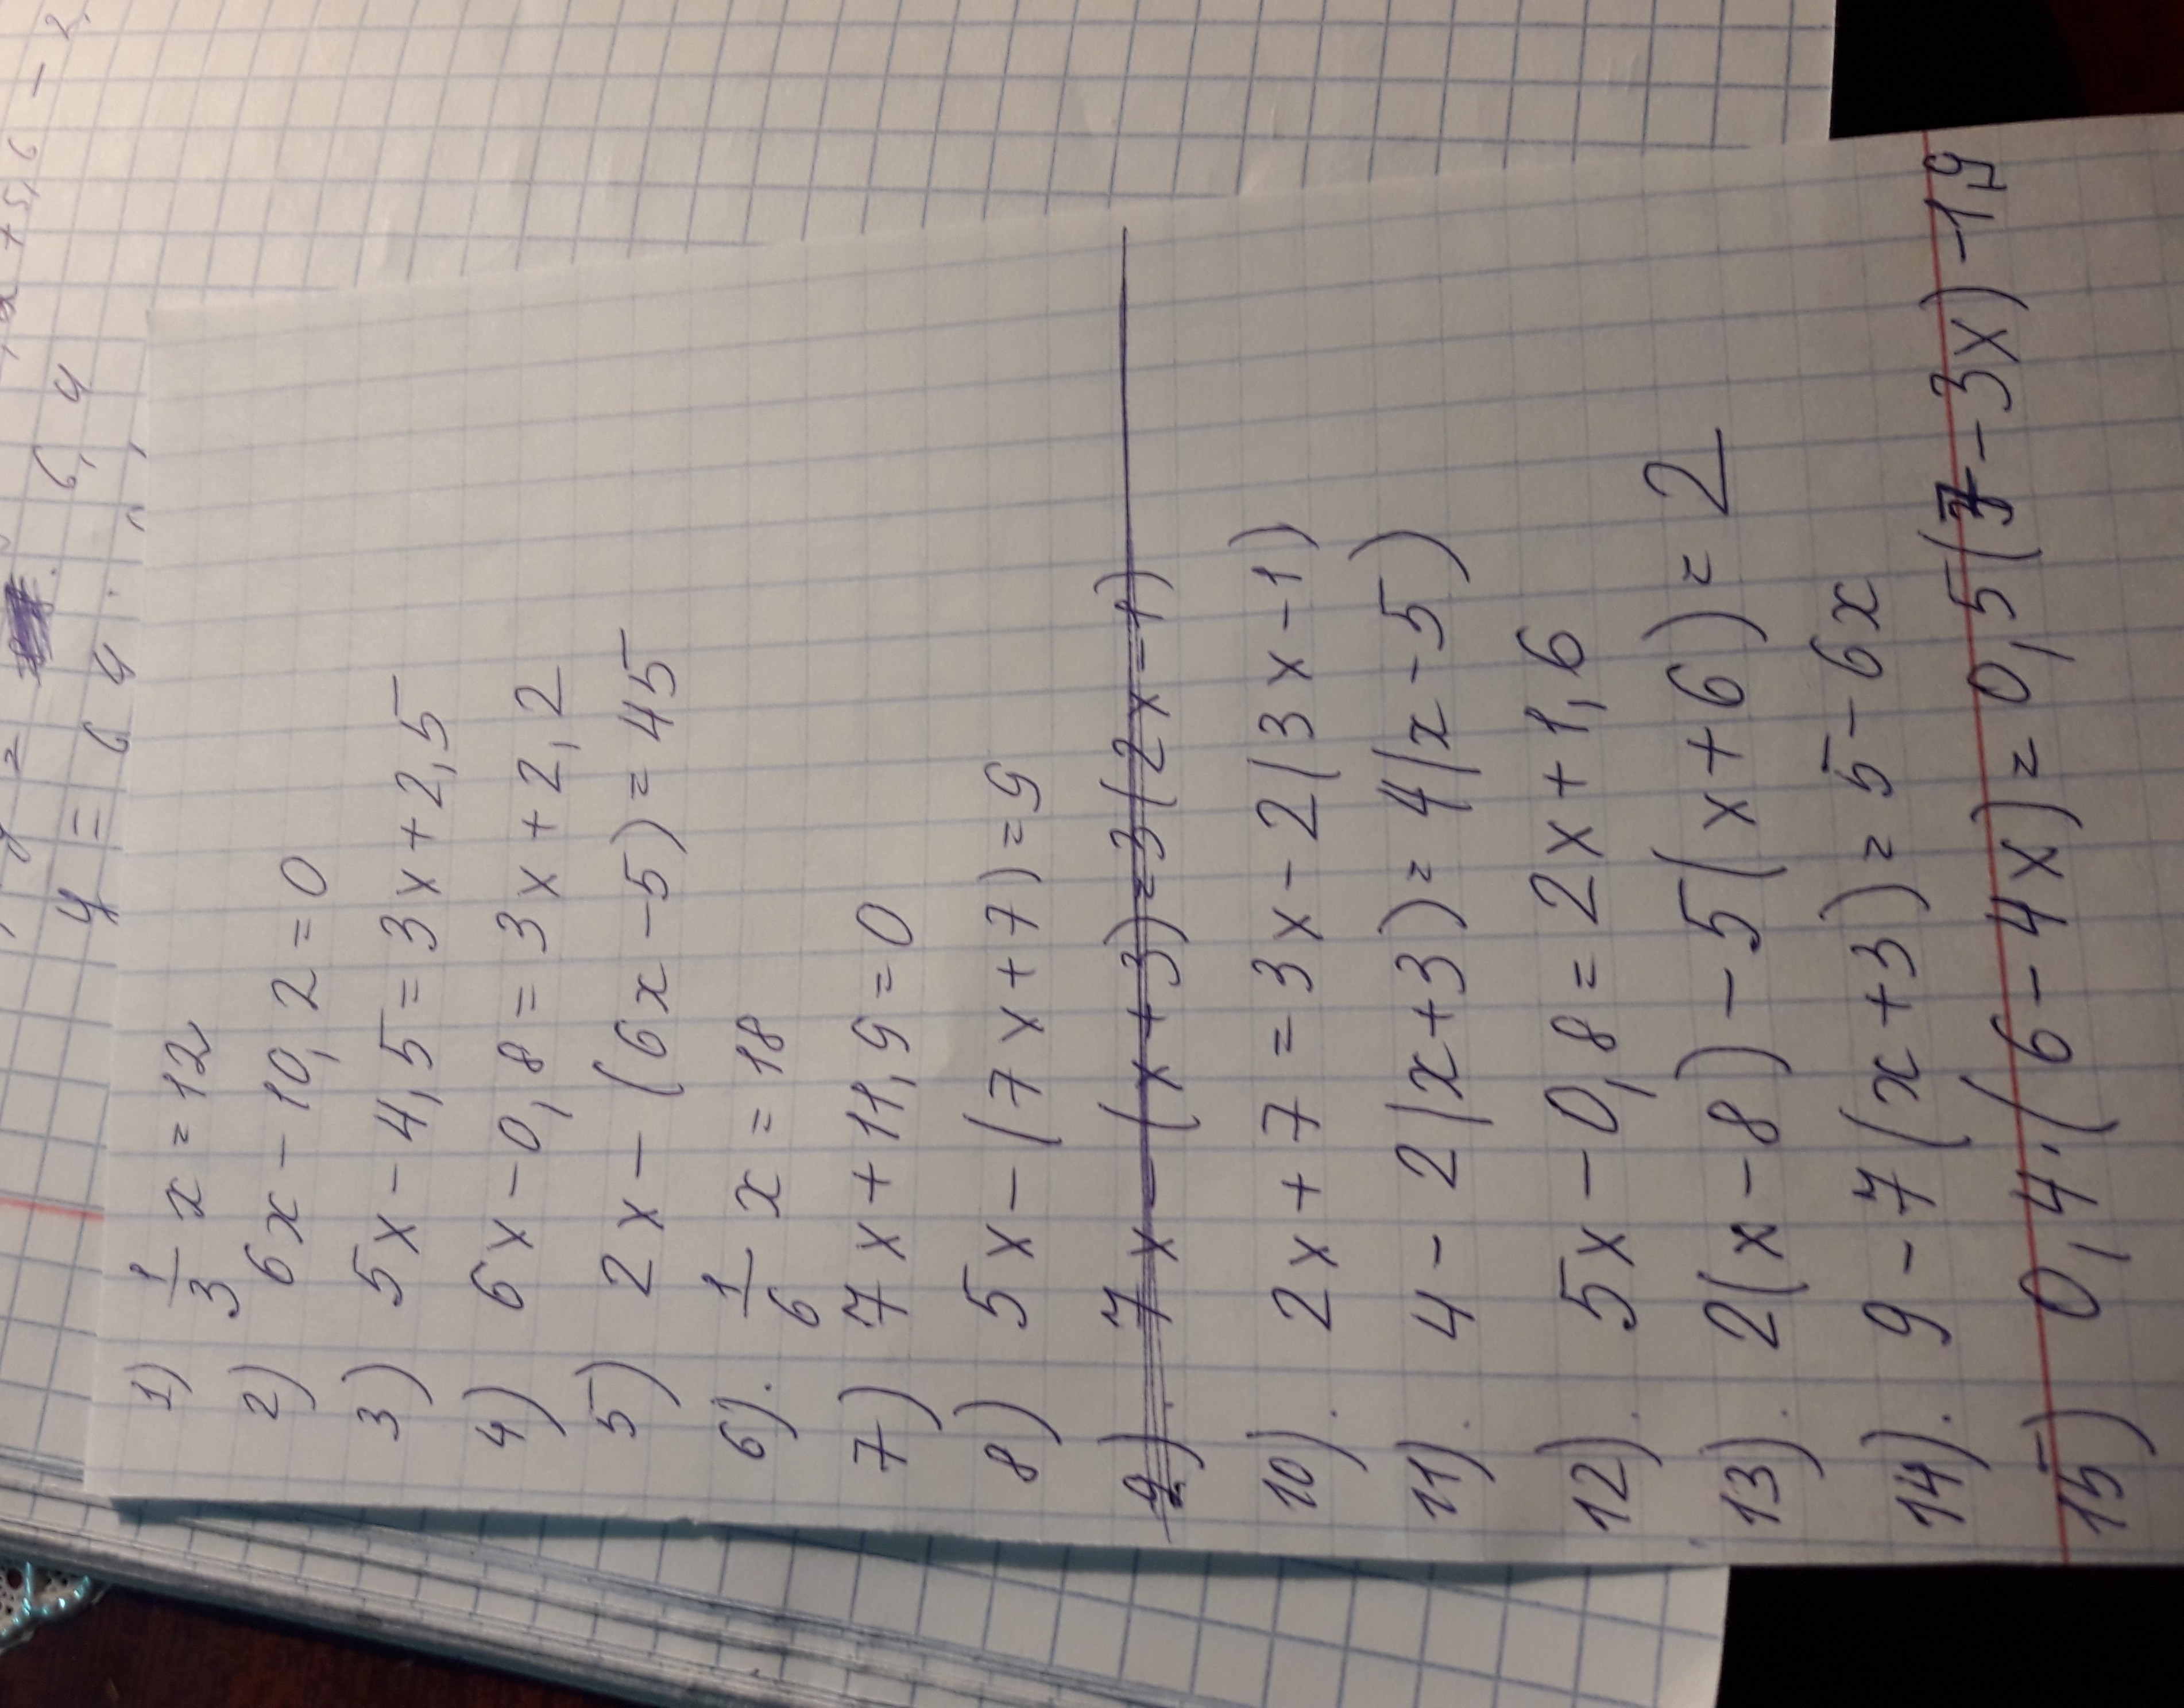 1) 1/3 x = 12
2) 6x - 10,2 = 0
3) 5x - 4,5 = 3x + 2,5
4) 6x - 0,8 = 3x + 2,2
5) 2x - (6x - 5) = 45
6). 1/6 x = 18
7) 7x + 11,9 = 0
8) 5x - (7x + 7) = 9
9). 7x - (x + 3) = 3(2x - 1)
10). 2x + 7 = 3x - 2(3x - 1)
11). 4 - 2(x + 3) = 4(x - 5)
12). 5x - 0,8 = 2x + 1,6
13). 2(x - 8) - 5(x + 6) = 2
14). 9 - 7(x + 3) = 5 - 6x
15) 0,4·(6 - 4x) = 0,5(7 - 3x) - 1,9